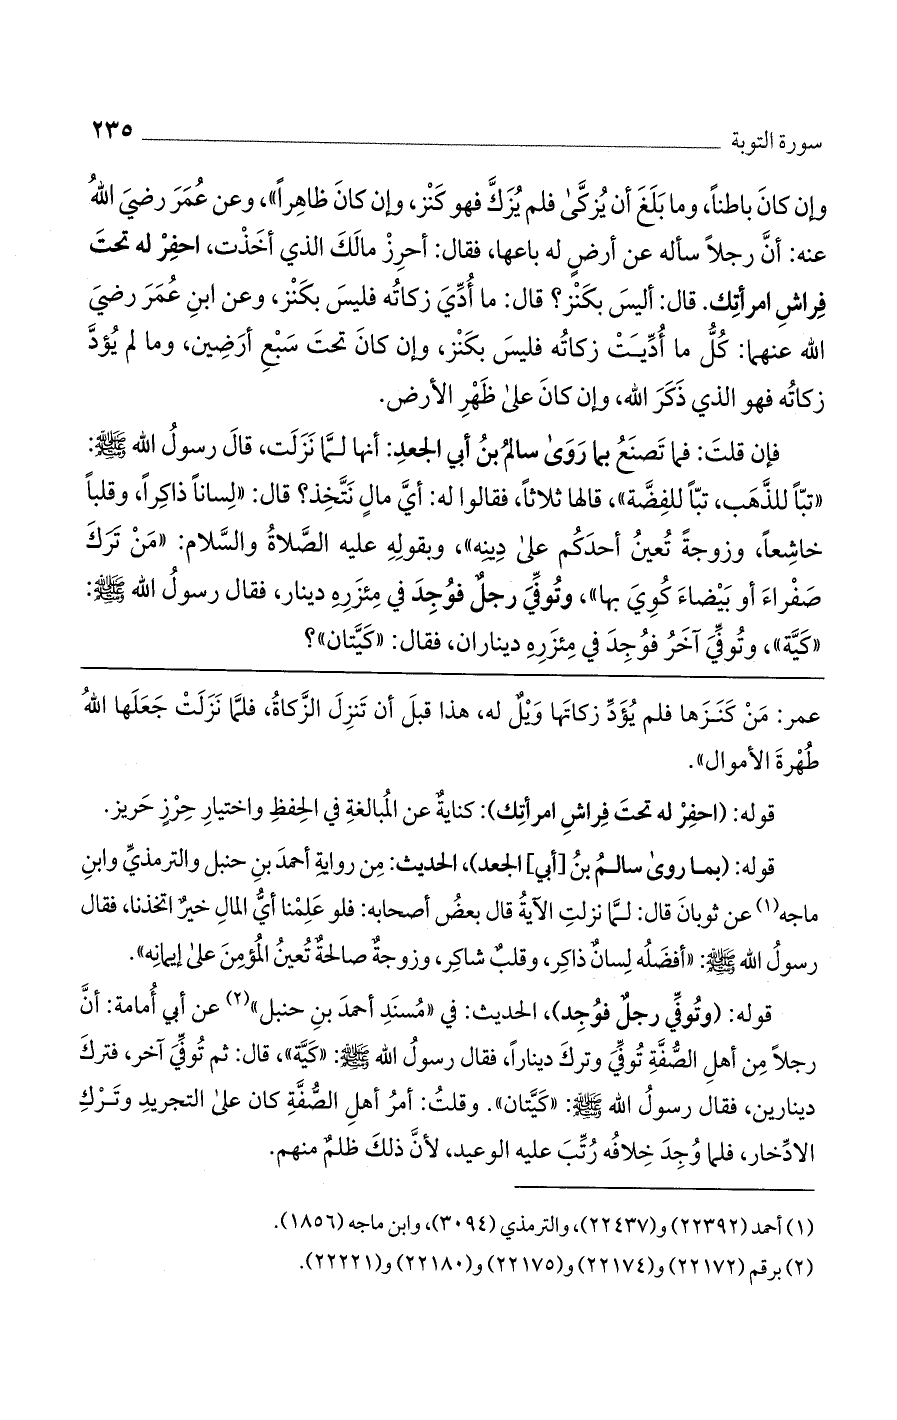 سورة التوبة ٢٣٥
وإن كانَ باطناً، وما بَلَغَ أن يُزكَّىٰ فلم يُزَكَّ فهو كَنْز، وإن كانَ ظاهِراً»، وعن عُمَرَ رضيَ اللهُ
عنه: أنَّ رجلاً سأله عن أرضٍ له باعها، فقال: أحرِزْ مالَكَ الذي أخَذْت، احفِرْ له تحتَ
فِراشِ امرأتِك. قال: أليسَ بكَنْز؟ قال: ما أُدِّيَ زكاتُه فليسَ بكَنْز، وعن ابنِ عُمَرَ رضيَ
الله عنهما: كُلُّ ما أُدِّيَتْ زكاتُه فليسَ بكَنْز، وإن كانَ تحتَ سَبْعِ أرَضِين، وما لم يُؤدَّ
زكاتُه فهو الذي ذَكَرَ الله، وإن كانَ علىٰ ظَهْرِ الأرض.
فإن قلتَ: فما تَصنَعُ بما رَوَىٰ سالمُ بنُ أبي الجعدِ: أنها لـمَّا نَزَلَت، قالَ رسولُ الله ﷺ:
«تبّاً للذَّهَب، تبّاً للفِضَّة»، قالها ثلاثاً، فقالوا له: أيَّ مالٍ نَتَّخِذ؟ قال: «لِساناً ذاكِراً، وقلباً
خاشِعاً، وزوجةً تُعينُ أحدَكُم علىٰ دِينِه»، وبقولِهِ عليه الصَّلاةُ والسَّلام: «مَنْ تَرَكَ
صَفْراءَ أو بَيْضاءَ كُوِيَ بها»، وتُوفِّيَ رجلٌ فوُجِدَ في مِئزَرِهِ دينار، فقال رسولُ الله ﷺ:
«كَيَّة»، وتُوفِّيَ آخَرُ فوُجِدَ في مِئزَرِهِ ديناران، فقال: «كَيَّتان»؟
عمر: مَنْ كَنَـزَها فلم يُؤَدِّ زكاتَها وَيْلٌ له، هذا قبلَ أن تَنزِلَ الزَّكاةُ، فلمَّا نَزَلَتْ جَعَلَها اللهُ
طُهْرةَ الأموال».
قوله: (احفِرْ له تحتَ فِراشِ امرأتِك): كنايةٌ عن المُبالغةِ في الحِفظِ واختيارِ حِرْزٍ حَريز.
قوله: (بمـا روىٰ سالـمُ بنُ [أبي] الجعد)، الحديث: مِن روايةِ أحمدَ بنِ حنبل والترمذيِّ وابنِ
ماجه(١) عن ثوبانَ قال: لـمَّا نزلتِ الآيةُ قال بعضُ أصحابه: فلو عَلِمْنا أيُّ المالِ خيرٌ اتخذنا، فقال
رسولُ الله ﷺ: «أفضَلُه لِسانٌ ذاكِر، وقلبٌ شاكِر، وزوجةٌ صالحةٌ تُعينُ المُؤمِنَ علىٰ إيمانِه».
قوله: (وتُوفِّي رجلٌ فوُجِد)، الحديث: في «مُسنَدِ أحمدَ بنِ حنبل»(٢) عن أبي أُمامة: أنَّ
رجلاً مِن أهلِ الصُّفَّةِ تُوفِّيَ وتركَ ديناراً، فقال رسولُ الله ﷺ: «كَيَّة»، قال: ثم تُوفِّيَ آخر، فتركَ
دينارين، فقال رسولُ الله ﷺ: «كَيَّتان». وقلتُ: أمرُ أهلِ الصُّفَّةِ كان علىٰ التجريدِ وتَـرْكِ
الادِّخار، فلما وُجِدَ خِلافُه رُتِّبَ عليه الوعيد، لأنَّ ذلكَ ظلمٌ منهم.
(١) أحمد (٢٢٣٩٢) و(٢٢٤٣٧)، والترمذي (٣٠٩٤)، وابن ماجه (١٨٥٦).
(٢) برقم (٢٢١٧٢) و(٢٢١٧٤) و(٢٢١٧٥) و(٢٢١٨٠) و(٢٢٢٢١).